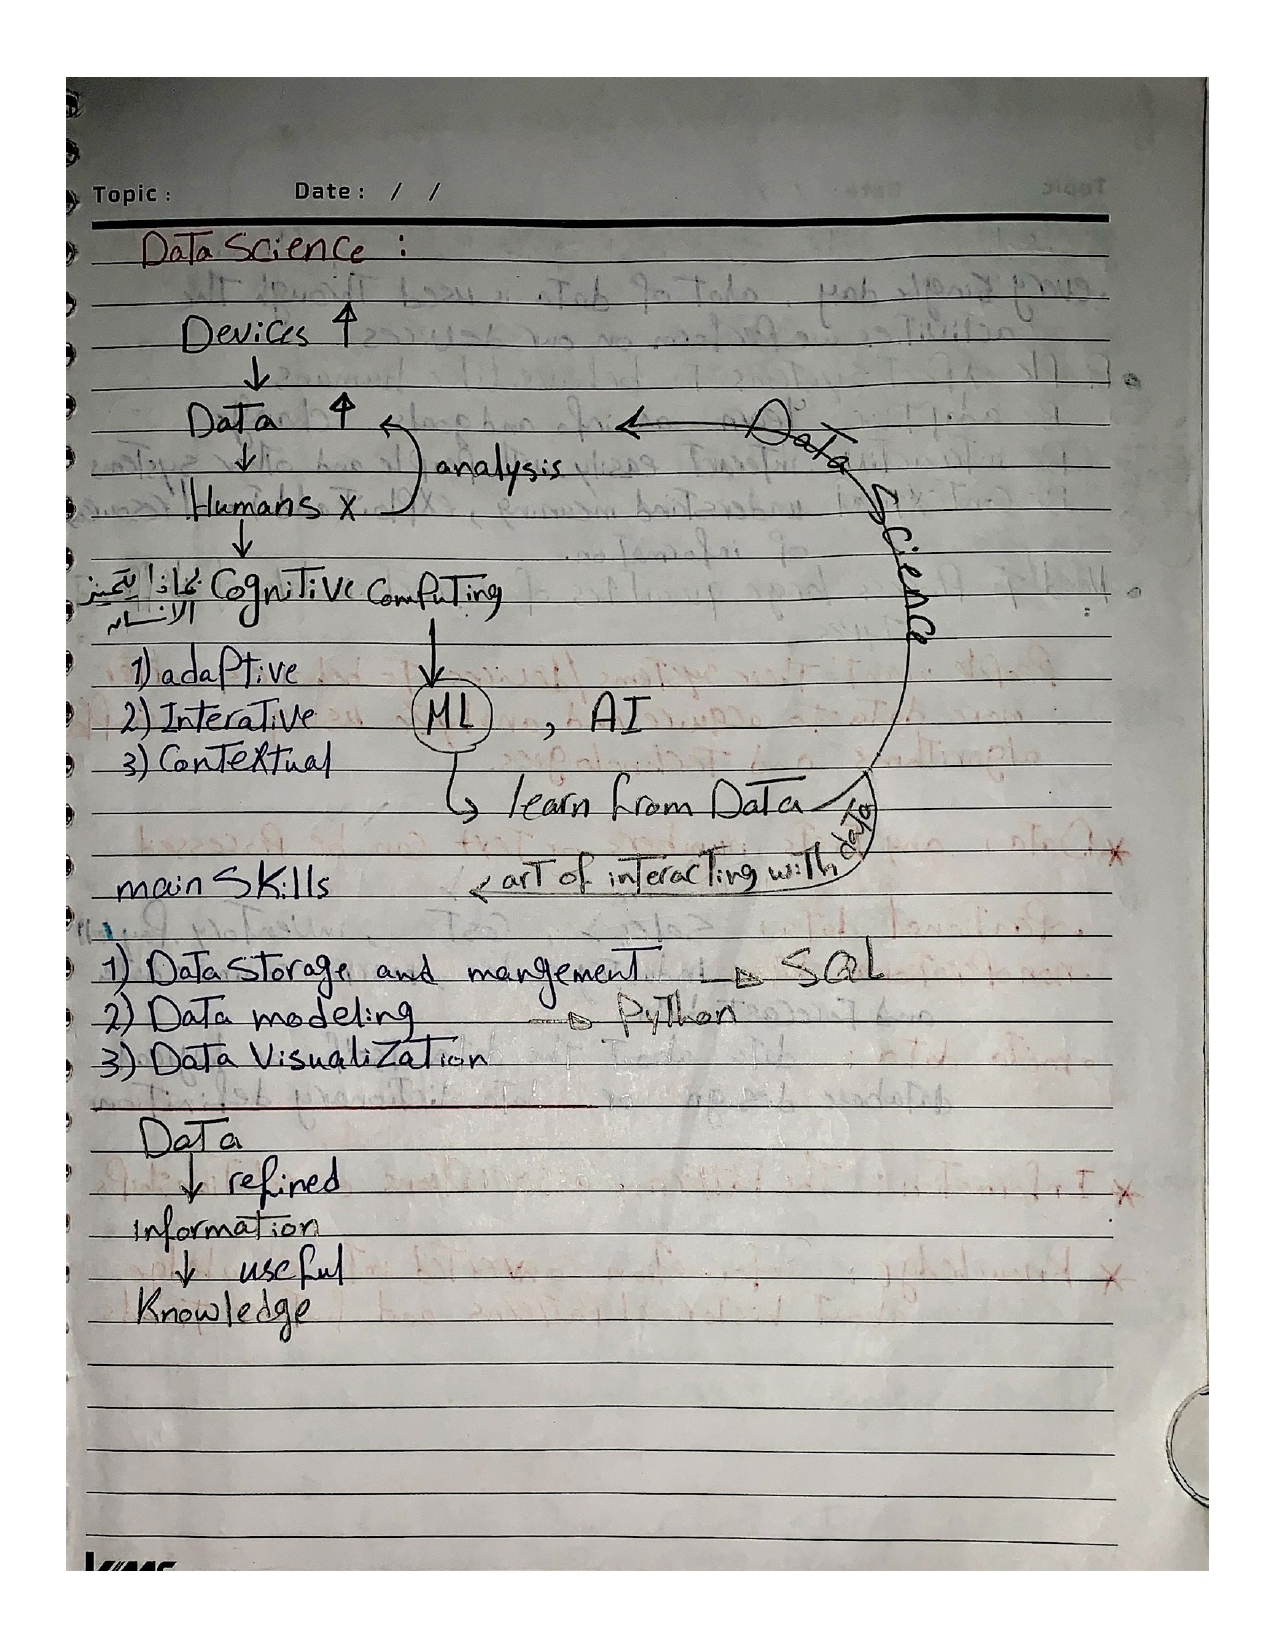 Topic : Date : / /
Data Science :
Devices ↑
↓
Data ↑ ← Data Science
↓ analysis
Humans x
↓
بماذا يتميز Cognitive Computing
الانسان
↓
1) adaptive
2) Interative ML , AI
3) Contextual
↳ learn from Data
main Skills ← art of interacting with data
1) Data Storage and mangement → SQL
2) Data modeling → Python
3) Data Visualization
Data
↓ refined
Information
↓ useful
Knowledge